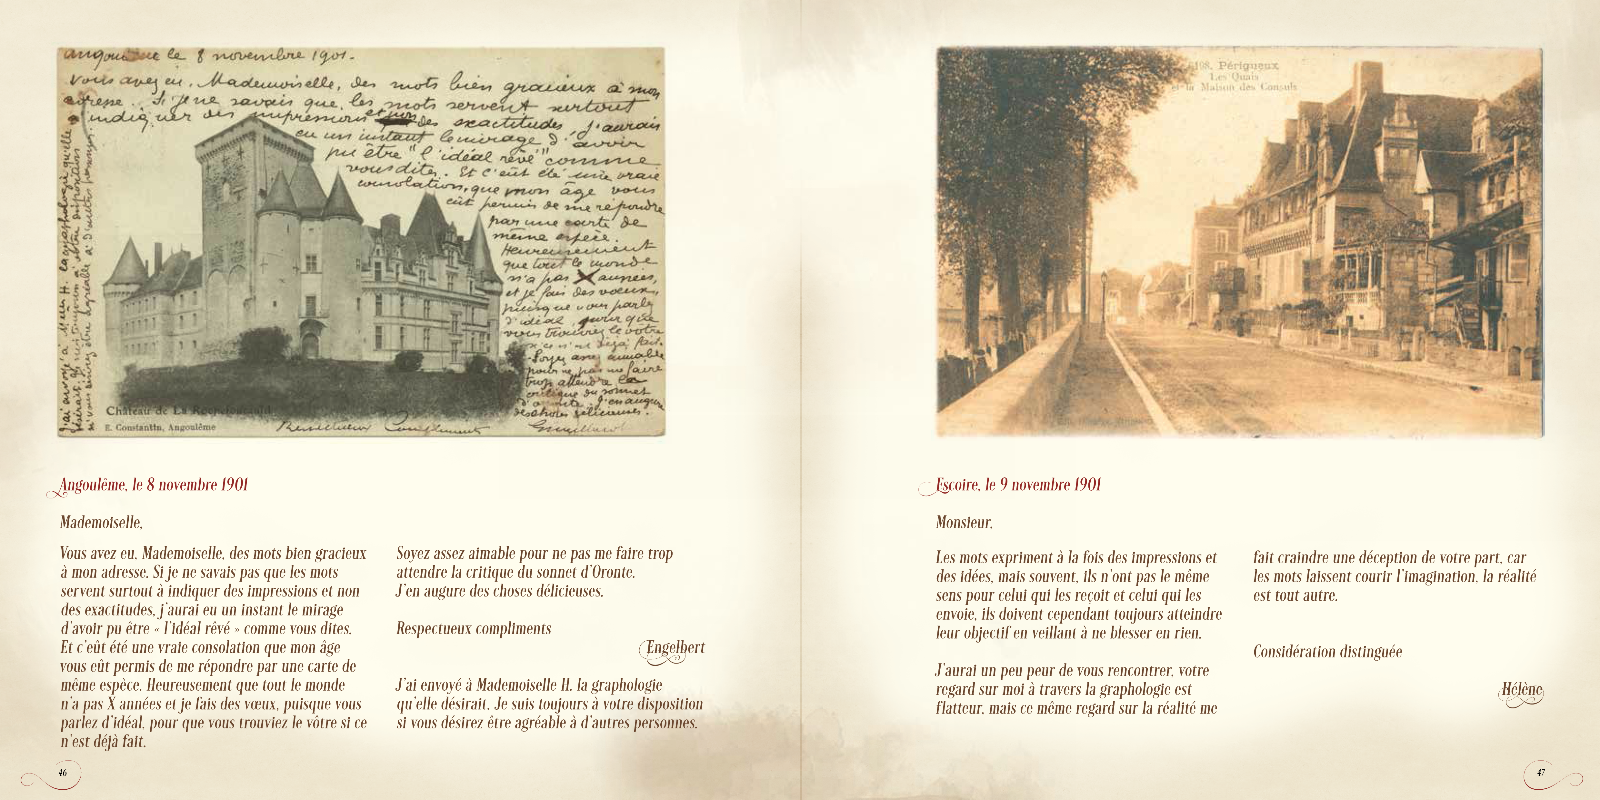 angoulême le 8 novembre 1901.
Vous avez eu, Mademoiselle, des mots bien gracieux à mon
adresse. Si je ne savais que les mots servent surtout
à indiquer des impressions et non des exactitudes, j'aurais
eu un instant le mirage d'avoir
pu être "l'idéal rêvé" comme
vous dites. Et c'eût été une vraie
consolation, que mon âge vous
eût permis de me répondre
par une carte de
même espèce.
Heureusement
que tout le monde
n'a pas X années,
et je fais des vœux,
puisque vous parlez
d'idéal, pour que
vous trouviez le vôtre
si ce n'est déjà fait.
Soyez assez aimable
pour ne pas me faire
trop attendre la
critique du sonnet
d'Oronte. J'en augure
des choses délicieuses.
Respectueux Compliments
J'ai envoyé à Melle H. la graphologie qu'elle
désirait. Je suis toujours à votre disposition
si vous désirez être agréable à d'autres personnes.
Château de La Rochefoucauld
E. Constantin, Angoulême
Angoulême, le 8 novembre 1901
Mademoiselle,
Vous avez eu, Mademoiselle, des mots bien gracieux
à mon adresse. Si je ne savais pas que les mots
servent surtout à indiquer des impressions et non
des exactitudes, j'aurai eu un instant le mirage
d'avoir pu être « l'idéal rêvé » comme vous dites.
Et c'eût été une vraie consolation que mon âge
vous eût permis de me répondre par une carte de
même espèce. Heureusement que tout le monde
n'a pas X années et je fais des vœux, puisque vous
parlez d'idéal, pour que vous trouviez le vôtre si ce
n'est déjà fait.
Soyez assez aimable pour ne pas me faire trop
attendre la critique du sonnet d'Oronte.
J'en augure des choses délicieuses.
Respectueux compliments
Engelbert
J'ai envoyé à Mademoiselle H. la graphologie
qu'elle désirait. Je suis toujours à votre disposition
si vous désirez être agréable à d'autres personnes.
46
198. Périgueux
Les Quais
et la Maison des Consuls
Escoire, le 9 novembre 1901
Monsieur,
Les mots expriment à la fois des impressions et
des idées, mais souvent, ils n'ont pas le même
sens pour celui qui les reçoit et celui qui les
envoie, ils doivent cependant toujours atteindre
leur objectif en veillant à ne blesser en rien.
J'aurai un peu peur de vous rencontrer, votre
regard sur moi à travers la graphologie est
flatteur, mais ce même regard sur la réalité me
fait craindre une déception de votre part, car
les mots laissent courir l'imagination, la réalité
est tout autre.
Considération distinguée
Hélène
47